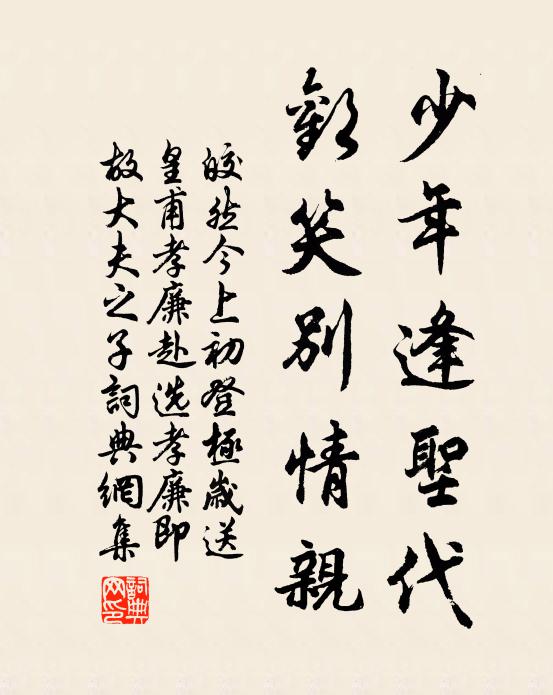 少年逢聖代
歡笑別情親
皎然今上初登極歲送
皇甫孝廉赴选孝廉即
故大夫之子詞典網集
詞典網印